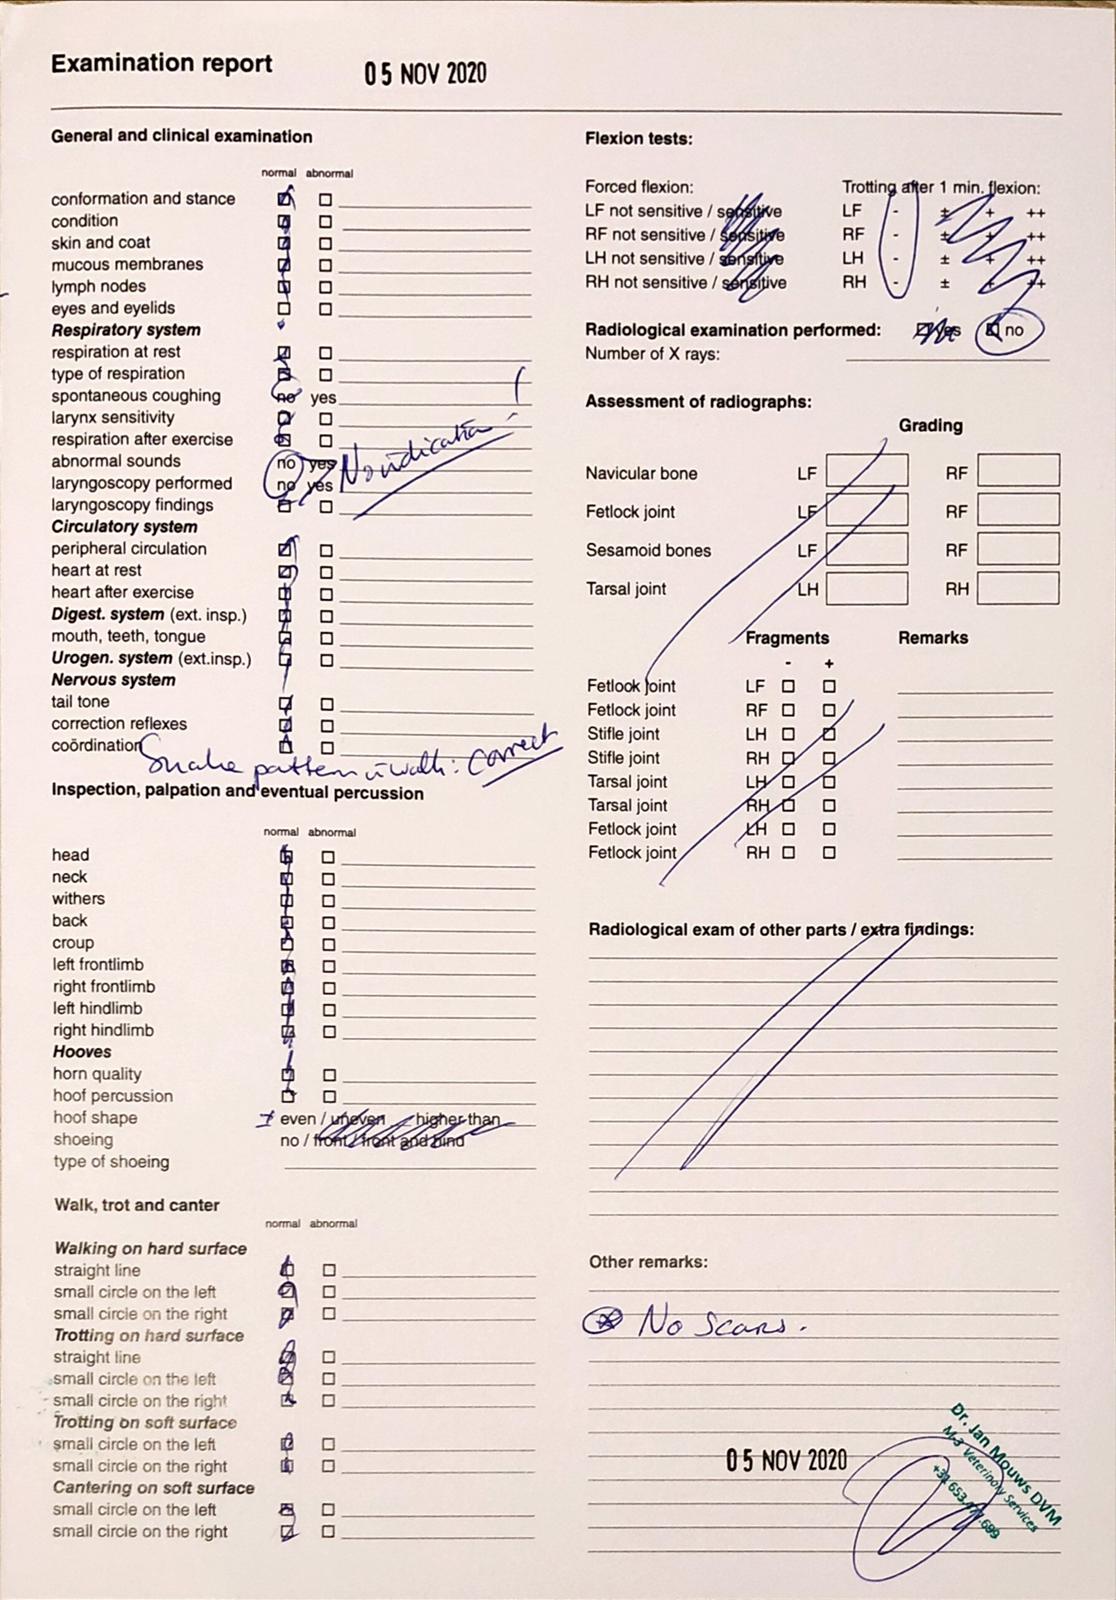 Examination report
05 NOV 2020
General and clinical examination
normal abnormal
conformation and stance
condition
skin and coat
mucous membranes
lymph nodes
eyes and eyelids
Respiratory system
respiration at rest
type of respiration
spontaneous coughing no yes
larynx sensitivity
respiration after exercise
abnormal sounds no yes
laryngoscopy performed no yes
No indication!
laryngoscopy findings
Circulatory system
peripheral circulation
heart at rest
heart after exercise
Digest. system (ext. insp.)
mouth, teeth, tongue
Urogen. system (ext.insp.)
Nervous system
tail tone
correction reflexes
coördination
Snake pattern walk: correct
Inspection, palpation and eventual percussion
normal abnormal
head
neck
withers
back
croup
left frontlimb
right frontlimb
left hindlimb
right hindlimb
Hooves
horn quality
hoof percussion
hoof shape even / uneven higher than
shoeing no / front / front and hind
type of shoeing
Walk, trot and canter
normal abnormal
Walking on hard surface
straight line
small circle on the left
small circle on the right
Trotting on hard surface
straight line
small circle on the left
small circle on the right
Trotting on soft surface
small circle on the left
small circle on the right
Cantering on soft surface
small circle on the left
small circle on the right
Flexion tests:
Forced flexion: Trotting after 1 min. flexion:
LF not sensitive / sensitive LF - ± + ++
RF not sensitive / sensitive RF - ± + ++
LH not sensitive / sensitive LH - ± + ++
RH not sensitive / sensitive RH - ± + ++
Radiological examination performed: yes no
Number of X rays:
Assessment of radiographs:
Grading
Navicular bone LF RF
Fetlock joint LF RF
Sesamoid bones LF RF
Tarsal joint LH RH
Fragments Remarks
- +
Fetlook joint LF
Fetlock joint RF
Stifle joint LH
Stifle joint RH
Tarsal joint LH
Tarsal joint RH
Fetlock joint LH
Fetlock joint RH
Radiological exam of other parts / extra findings:
Other remarks:
No scars.
05 NOV 2020
Dr. Jan Mouws DVM
M-3 Veterinary Services